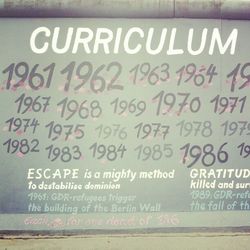 CURRICULUM
1961 1962 1963 1964
1967 1968 1969 1970 1971
1974 1975 1976 1977 1978
1982 1983 1984 1985 1986
ESCAPE is a mighty method
to destabilise dominion
1961: GDR-refugees trigger
the building of the Berlin Wall
GRATITUD
killed and sur
1989: GDR-refu
the fall of th